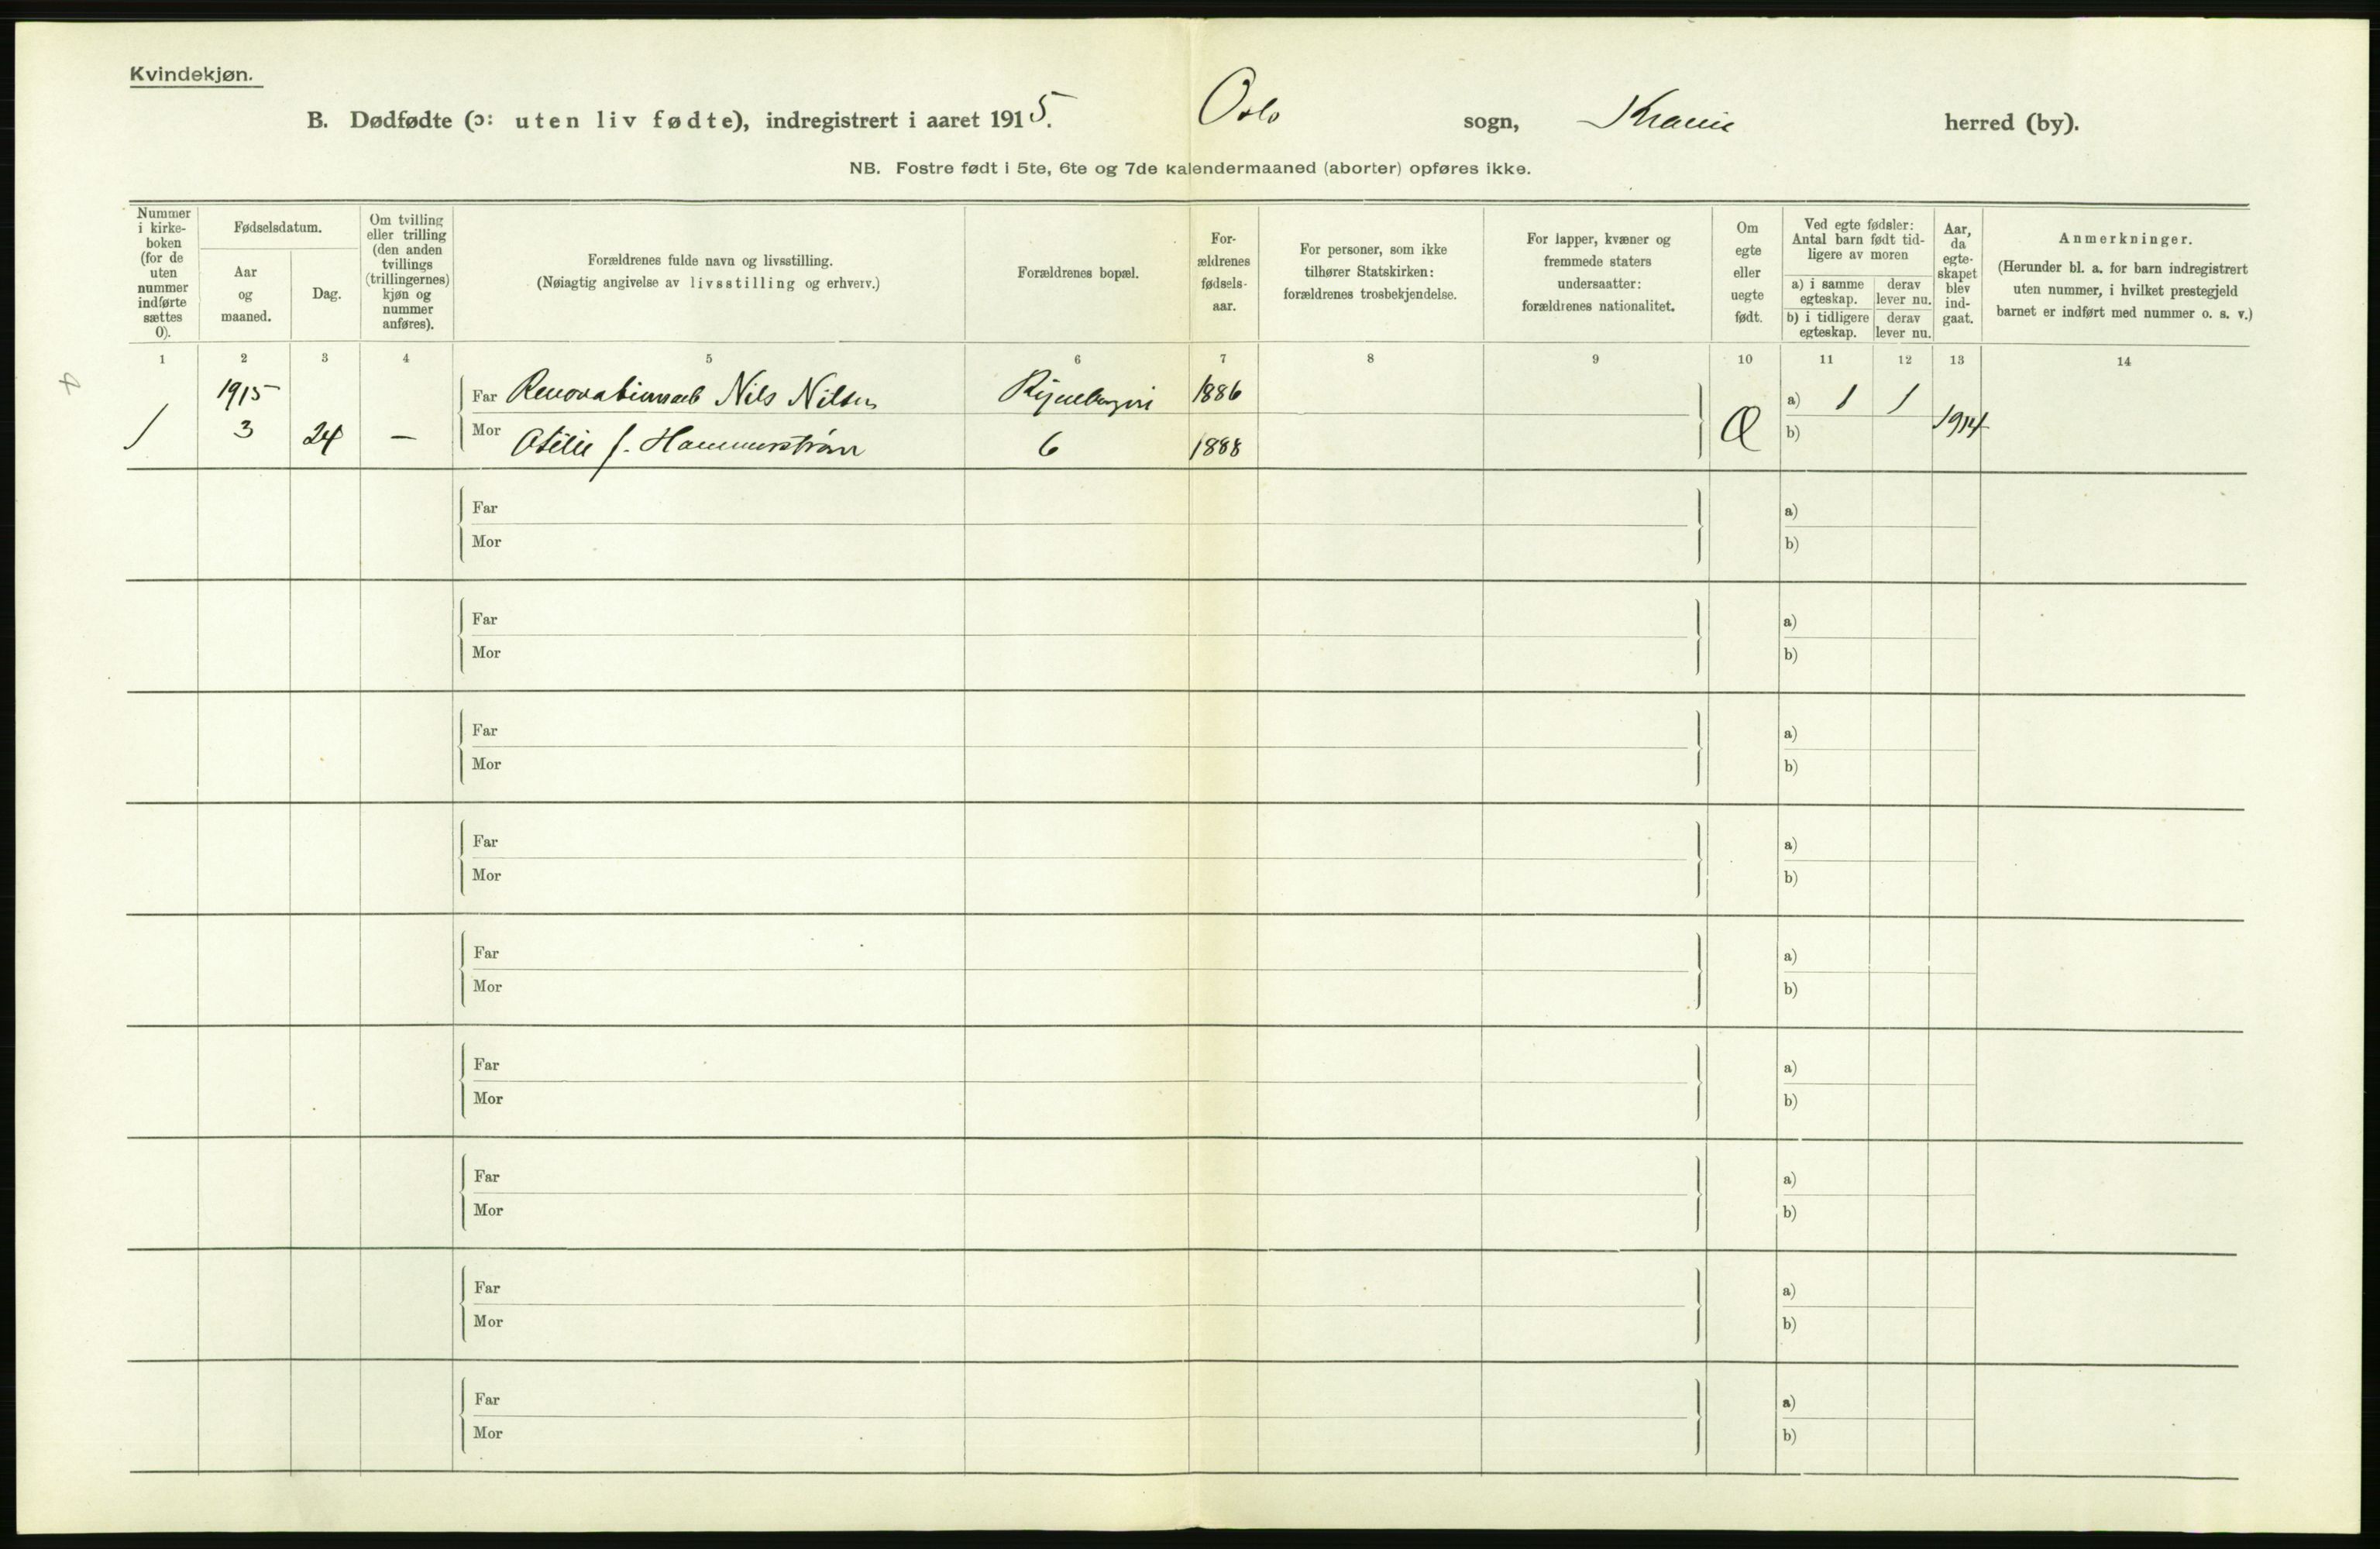 Kvindekjøn.
B. Dødfødte (ɔ: uten liv fødte), indregistrert i aaret 1915. Oslo sogn, Krania herred (by).
NB. Fostre født i 5te, 6te og 7de kalendermaaned (aborter) opføres ikke.
Nummer
i kirke-
boken
(for de
uten
nummer
indførte
sættes
0).
Fødselsdatum.
Aar
og
maaned.
Dag.
Om tvilling
eller trilling
(den anden
tvillings
(trillingernes)
kjøn og
nummer
anføres).
Forældrenes fulde navn og livsstilling.
(Nøiagtig angivelse av livsstilling og erhverv.)
Forældrenes bopæl.
For-
ældrenes
fødsels-
aar.
For personer, som ikke
tilhører Statskirken:
forældrenes trosbekjendelse.
For lapper, kvæner og
fremmede staters
undersaatter:
forældrenes nationalitet.
Om
egte
eller
uegte
født.
Ved egte fødsler:
Antal barn født tid-
ligere av moren
a) i samme
egteskap.
derav
lever nu.
b) i tidligere
egteskap.
derav
lever nu.
Aar,
da
egte-
skapet
blev
ind-
gaat.
Anmerkninger.
(Herunder bl. a. for barn indregistrert
uten nummer, i hvilket prestegjeld
barnet er indført med nummer o. s. v.)
1 2 3 4 5 6 7 8 9 10 11 12 13 14
1915 Far Renovationsarb Nils Nilsen 1886 a) 1 1
1 3 24 — Mor Otilie f. Hammerstrøm 6 1888 Æ b) 1914
Far a)
Mor b)
Far a)
Mor b)
Far a)
Mor b)
Far a)
Mor b)
Far a)
Mor b)
Far a)
Mor b)
Far a)
Mor b)
Far a)
Mor b)
Far a)
Mor b)